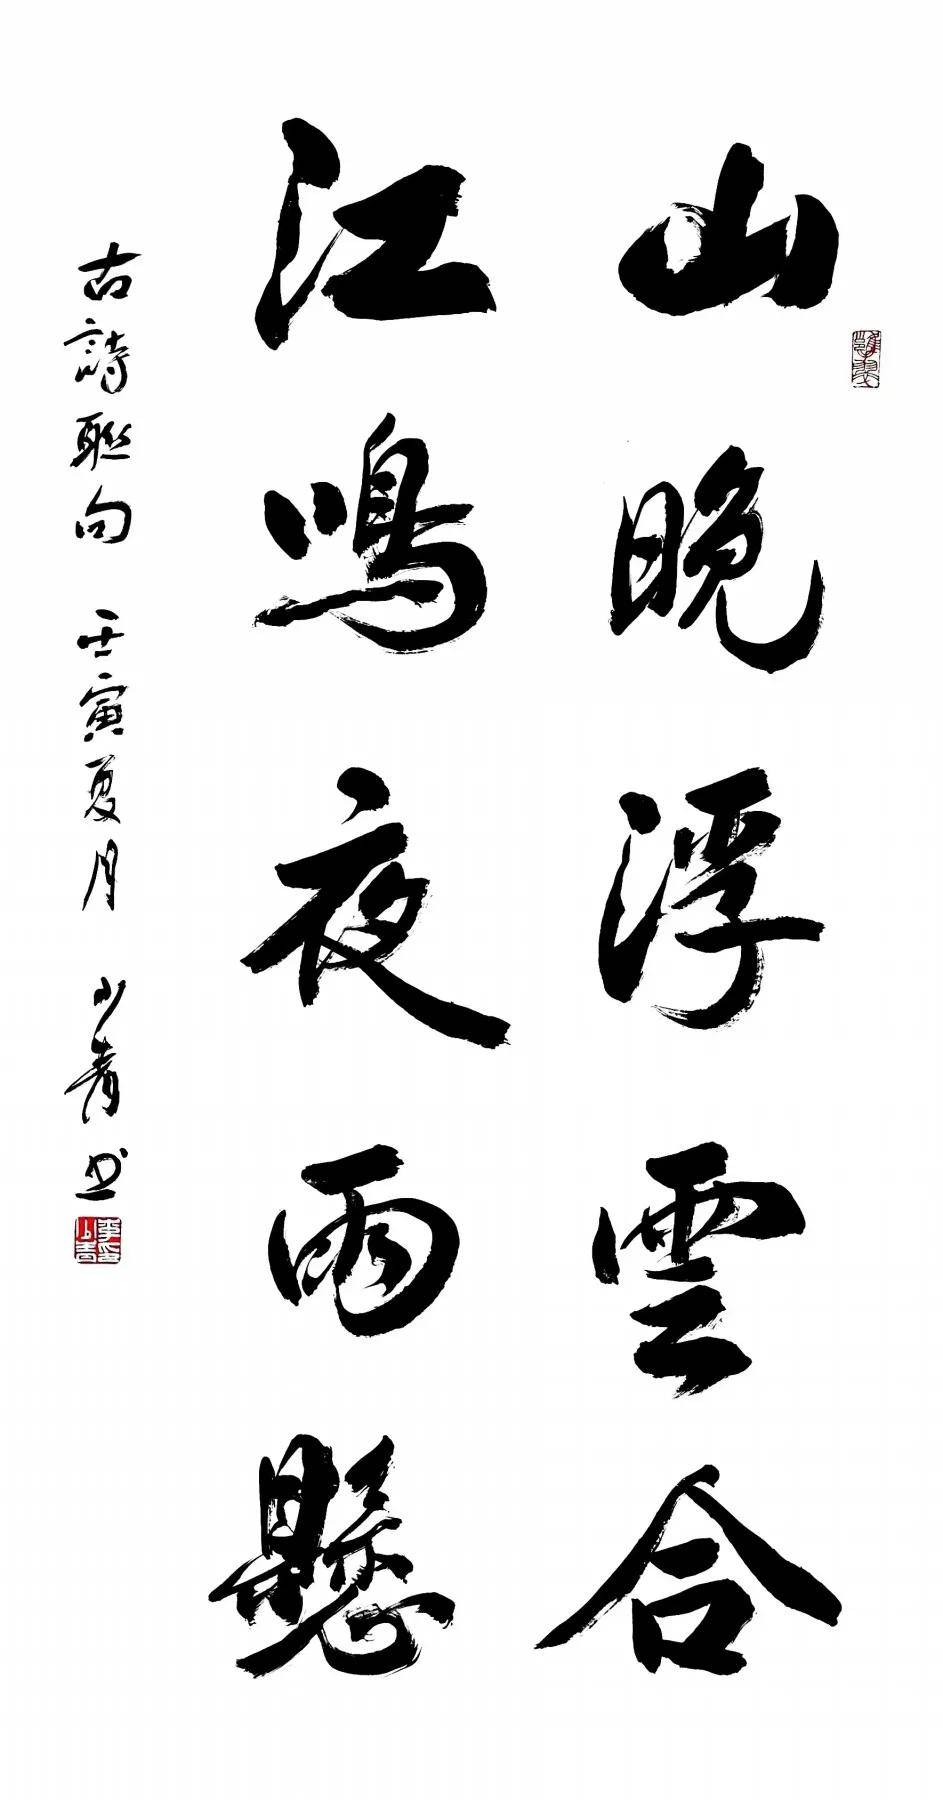 山晚浮雲合
江鳴夜雨懸
古詩聯句 壬寅夏月 小青书